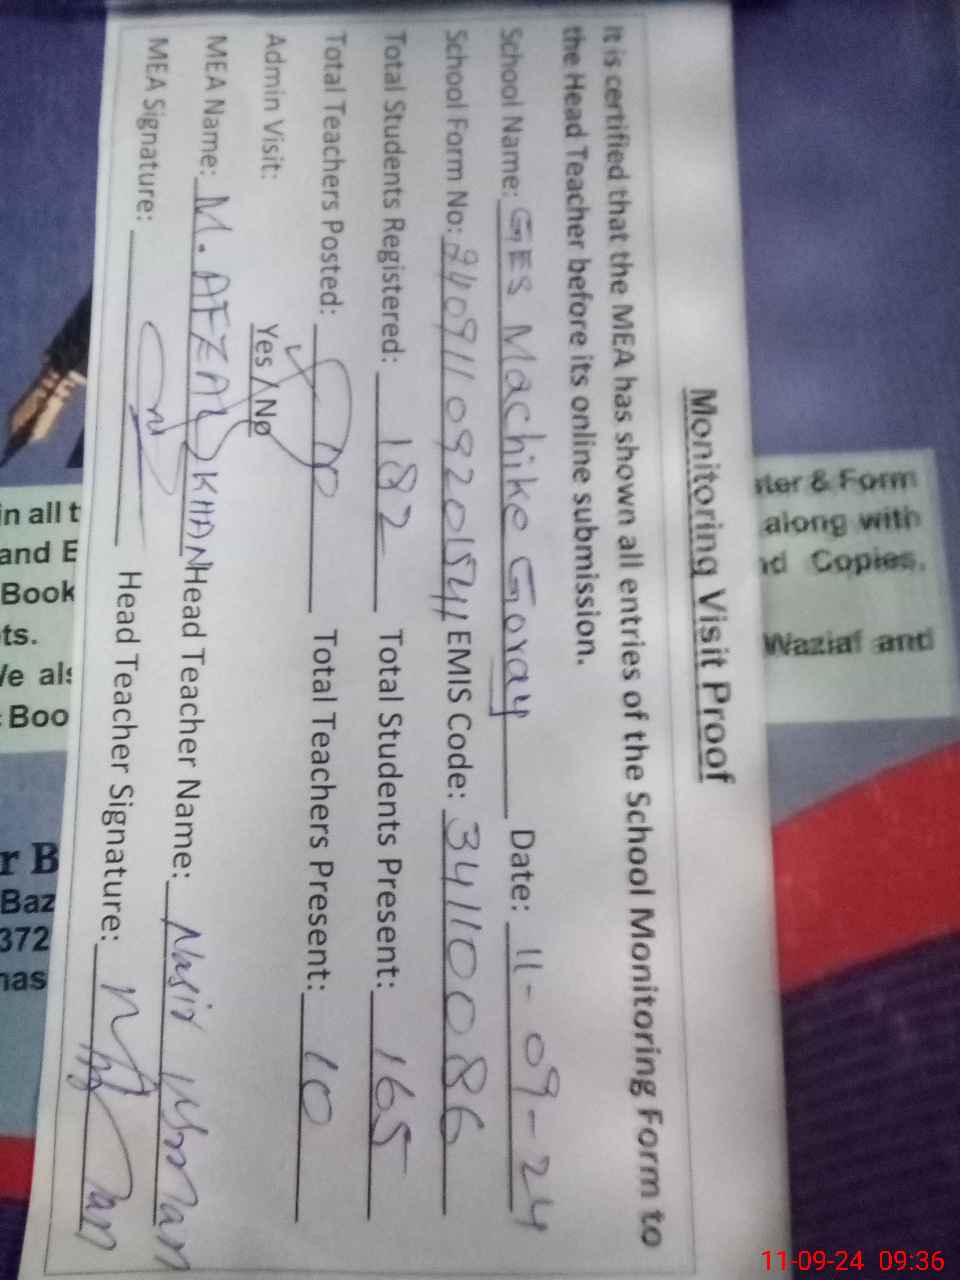 Monitoring Visit Proof
It is certified that the MEA has shown all entries of the School Monitoring Form to
the Head Teacher before its online submission.
School Name: GES Machike Goray Date: 11-09-24
School Form No: EMIS Code: 34110086
Total Students Registered: 182 Total Students Present: 165
Total Teachers Posted: Total Teachers Present: 10
Admin Visit: Yes / No
MEA Name: M. AFZAL KHAN Head Teacher Name: Nasir
MEA Signature: Head Teacher Signature:
ster & Form
along with
nd Copies.
Waziaf and
in all t
and E
Book
ts.
Ve als
Boo
r B
Baz
372
nas
11-09-24 09:36